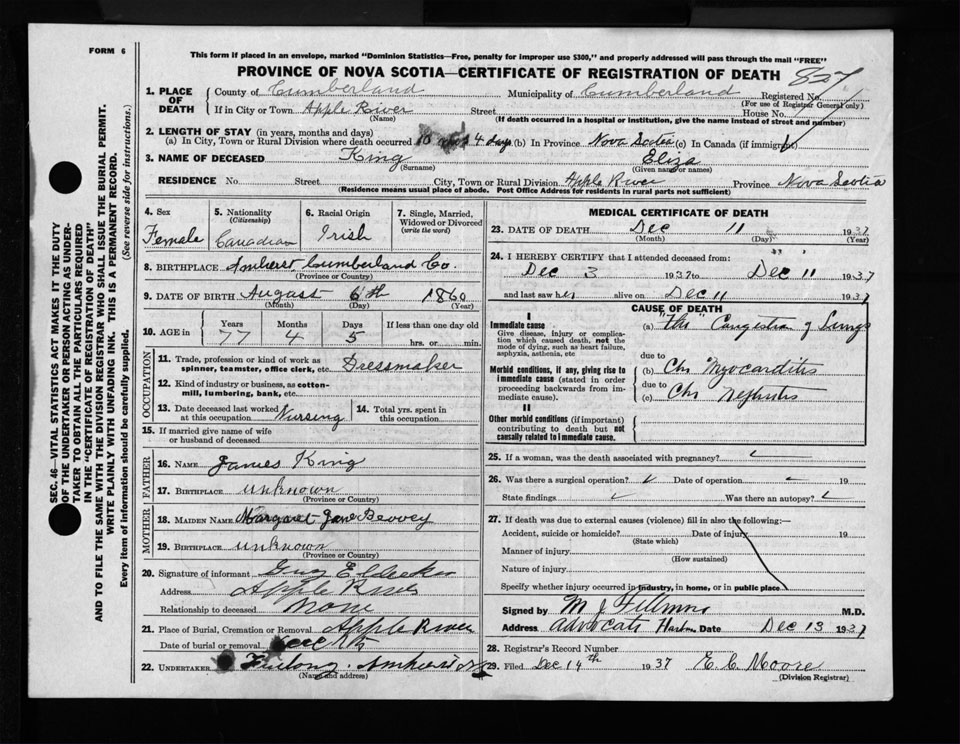 FORM 6
This form if placed in an envelope, marked "Dominion Statistics—Free, penalty for improper use $300," and properly addressed will pass through the mail "FREE"
PROVINCE OF NOVA SCOTIA—CERTIFICATE OF REGISTRATION OF DEATH
1. PLACE OF DEATH
County of Cumberland Municipality of Cumberland Registered No. 827
(For use of Registrar General only)
If in City or Town Apple River Street House No.
(Name) (If death occurred in a hospital or institution, give the name instead of street and number)
2. LENGTH OF STAY (in years, months and days)
(a) In City, Town or Rural Division where death occurred 10 4 days (b) In Province Nova Scotia (c) In Canada (if immigrant)
3. NAME OF DECEASED King Eliza
(Surname) (Given name or names)
RESIDENCE No. Street City, Town or Rural Division Apple River Province Nova Scotia
(Residence means usual place of abode. Post Office Address for residents in rural parts not sufficient)
4. Sex Female
5. Nationality (Citizenship) Canadian
6. Racial Origin Irish
7. Single, Married, Widowed or Divorced (write the word)
8. BIRTHPLACE Amherst Cumberland Co.
(Province or Country)
9. DATE OF BIRTH August 6th 1860
(Month) (Day) (Year)
10. AGE in Years Months Days If less than one day old
77 4 5 hrs. or min.
OCCUPATION
11. Trade, profession or kind of work as spinner, teamster, office clerk, etc. Dressmaker
12. Kind of industry or business, as cotton-mill, lumbering, bank, etc.
13. Date deceased last worked at this occupation Nursing
14. Total yrs. spent in this occupation
15. If married give name of wife or husband of deceased
FATHER
16. NAME James King
17. BIRTHPLACE unknown
(Province or Country)
MOTHER
18. MAIDEN NAME Margaret Jane
19. BIRTHPLACE unknown
(Province or Country)
20. Signature of informant Guy
Address Apple River
Relationship to deceased None
21. Place of Burial, Cremation or Removal Apple River
Date of burial or removal
22. UNDERTAKER Furlong Amherst NS
(Name and address)
MEDICAL CERTIFICATE OF DEATH
23. DATE OF DEATH Dec 11 1937
(Month) (Day) (Year)
24. I HEREBY CERTIFY that I attended deceased from:
Dec 3 1937 to Dec 11 1937
and last saw her alive on Dec 11 1937
CAUSE OF DEATH
I
Immediate cause
Give disease, injury or complication which caused death, not the mode of dying, such as heart failure, asphyxia, asthenia, etc
(a) Congestion of Lungs
due to
Morbid conditions, if any, giving rise to immediate cause (stated in order proceeding backwards from immediate cause).
(b) Chr Myocarditis
due to
(c) Chr Nephritis
II
Other morbid conditions (if important) contributing to death but not causally related to immediate cause.
25. If a woman, was the death associated with pregnancy?
26. Was there a surgical operation? Date of operation 19
State findings Was there an autopsy?
27. If death was due to external causes (violence) fill in also the following:—
Accident, suicide or homicide? Date of injury 19
(State which)
Manner of injury
(How sustained)
Nature of injury
Specify whether injury occurred in industry, in home, or in public place
Signed by M. J. M.D.
Address Advocate Harbour Date Dec 13 1937
28. Registrar's Record Number
29. Filed Dec 14th 1937 E. C. Moore
(Division Registrar)
SEC. 46—VITAL STATISTICS ACT MAKES IT THE DUTY
OF THE UNDERTAKER OR PERSON ACTING AS UNDER-
TAKER TO OBTAIN ALL THE PARTICULARS REQUIRED
IN THE "CERTIFICATE OF REGISTRATION OF DEATH"
AND TO FILE THE SAME WITH THE DIVISION REGISTRAR WHO SHALL ISSUE THE BURIAL PERMIT.
WRITE PLAINLY WITH UNFADING INK. THIS IS A PERMANENT RECORD.
Every item of information should be carefully supplied. (See reverse side for instructions.)